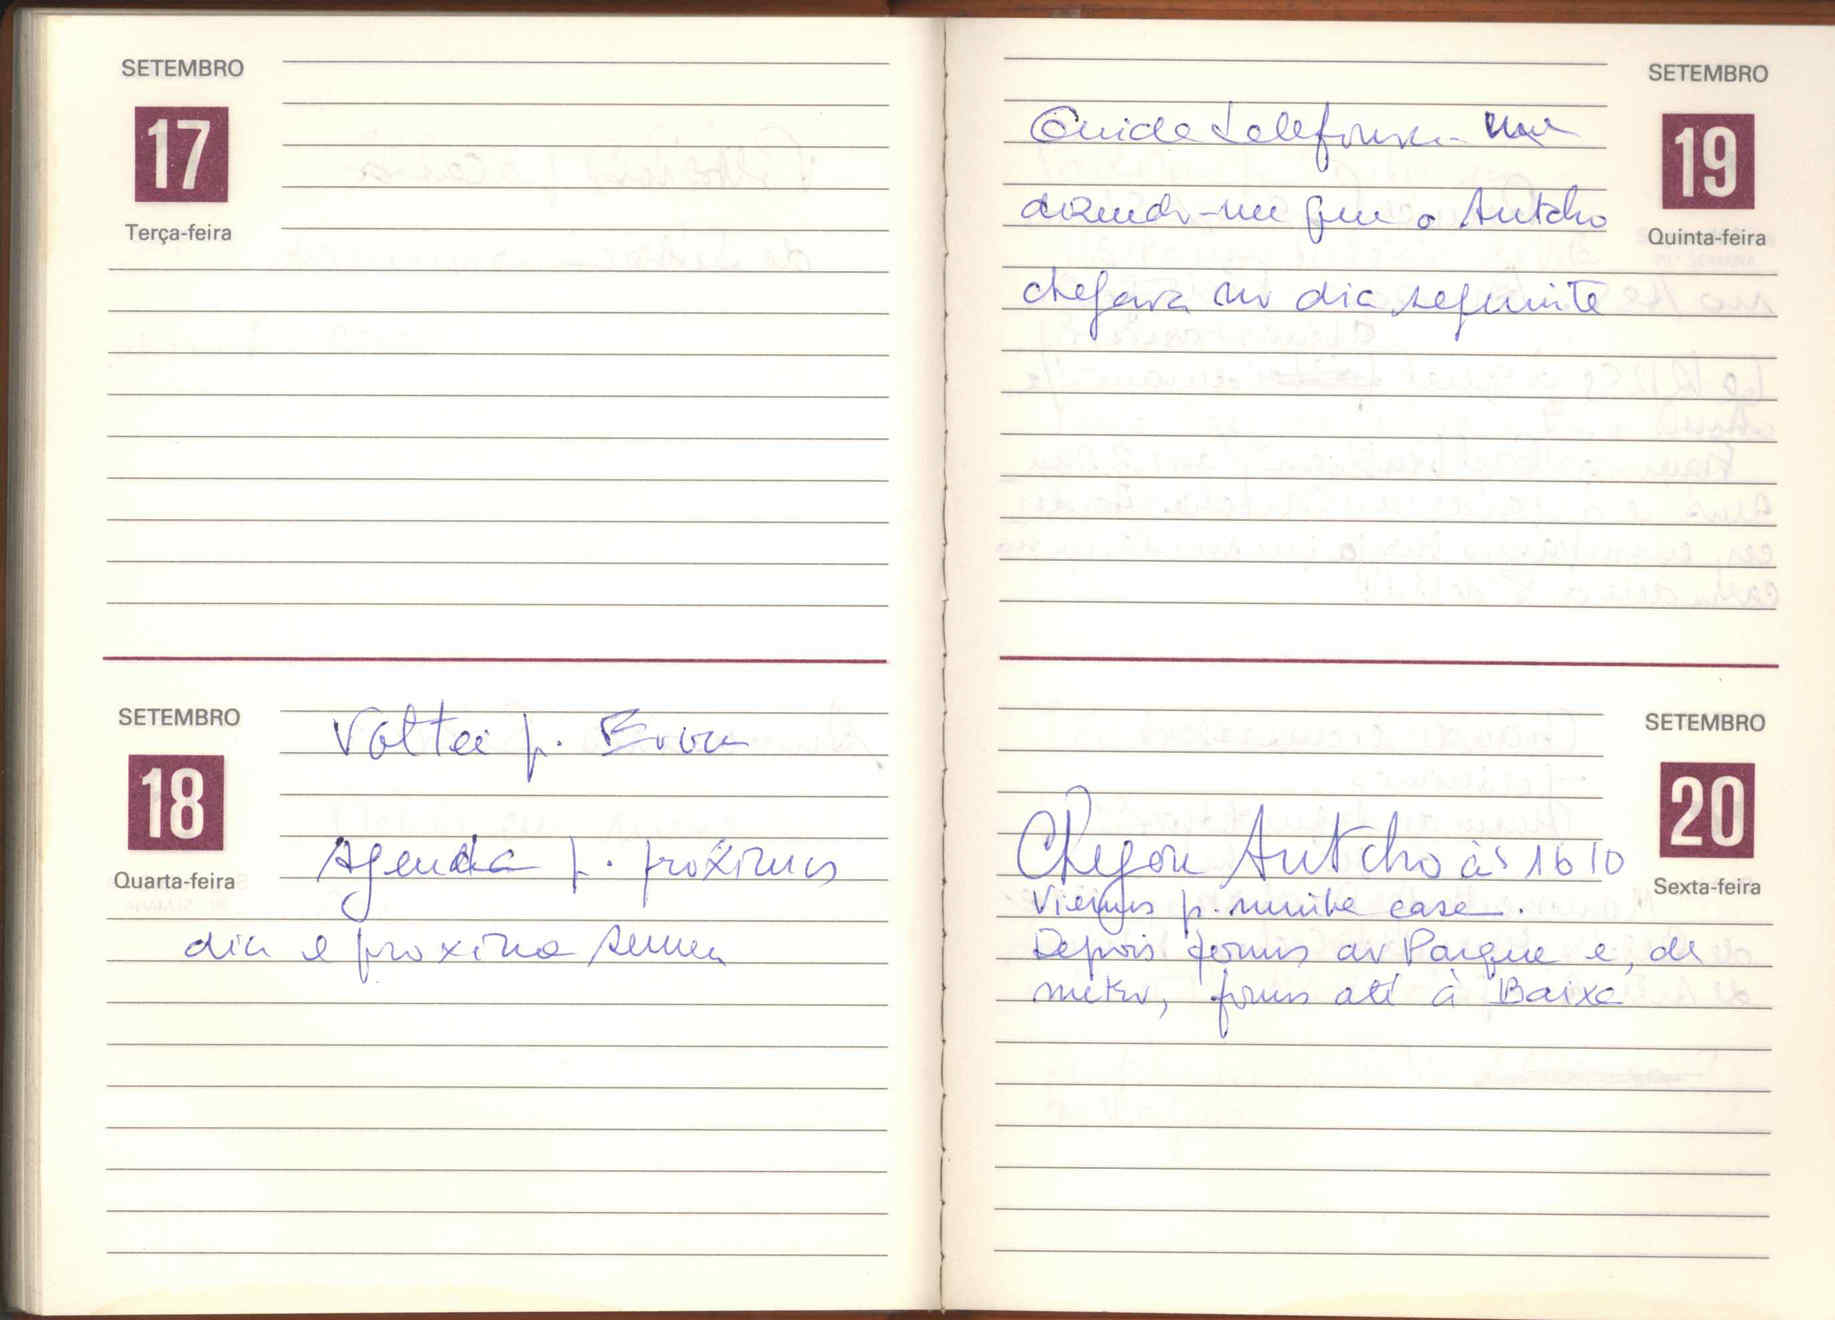 SETEMBRO
17
Terça-feira
SETEMBRO
18
Quarta-feira
Voltei p. Evora
Agenda p. próximos
dia e proxima semen
SETEMBRO
19
Quinta-feira
telefonou-me
dizendo-me que o Antcho
chegava no dia seguinte
SETEMBRO
20
Sexta-feira
Chegou Antcho às 16 10
Viemos p. minha casa.
Depois fomos ao Parque e, de
metro, fomos até à Baixa